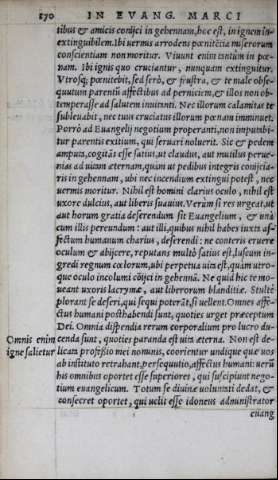 170 IN EVANG. MARCI
tibus & amicis conijci in gehennam, hoc est, in ignem in-
extinguibilem. Ibi vermis arrodens pœnitẽtia miserorum
conscientiam non moritur. Vivunt enim tantum in pœ-
nam. Ibi ignis quo cruciantur, nunquam extinguitur.
Vtrosq; pœnitebit, sed serò, & frustra, & te male obse-
quutum parentis affectibus ad perniciem, & illos non ob-
temperasse ad salutem invitanti. Nec illorum calamitas te
subleuabit, nec tuus cruciatus illorum pœnam imminuet.
Porrò ad Euangelij negotium properanti, non impunibi-
tur parentis exitium, qui seruari noluerit. Sic & pedem
amputa, cogitãs esse satius, ut claudus, aut mutilus perue-
nias ad vitam æternam, quàm ut pedibus integris conijcia-
ris in gehennam, ubi nec incendium extingui potest, nec
uermis moritur. Nihil est homini clarius oculo, nihil est
uxore dulcius, aut liberis suauius. Verùm si res urgeat, ut
aut horum gratia deserendum sit Euangelium, & unà
cum illis pereundum: aut illi, quibus nihil habes iuxta af-
fectum humanum charius, deserendi: ne conteris eruere
oculum & abijcere, reputans multò satius est, luscum in-
gredi regnum cælorum, ubi perpetua uita est, quàm utro-
que oculo incolumi cõijci in gehennã. Ne quid hic te mo-
ueant uxoris lacrymæ, aut liberorum blanditiæ. Stultè
plorant se deseri, qui sequi poterãt, si uellent. Omnes affe-
ctus humani posthabendi sunt, quoties urget præceptum
Dei. Omnia dispendia rerum corporalium pro lucro du-
Omnis enim cenda sunt, quoties paranda est uita æterna. Non est de-
igne salietur licata professio mei nominis, coorientur undique quæ uos
ab instituto retrahant, persequutio, affectus humani: uerũ
his omnibus oportet esse superiores, qui suscipiunt nego-
tium euangelicum. Totum se diuinæ uoluntati dedat, &
consecret oportet, qui uelit esse idoneus administrator
euang